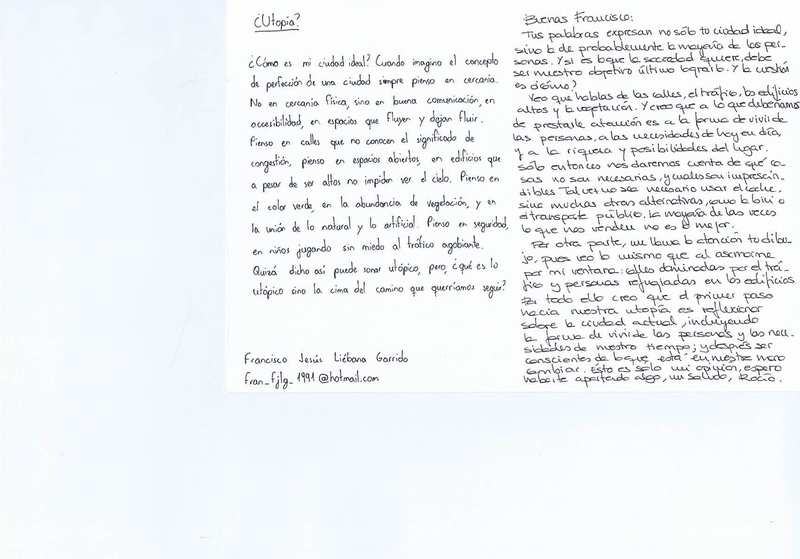 ¿Utopía?
¿Cómo es mi ciudad ideal? Cuando imagino el concepto
de perfección de una ciudad siempre pienso en cercanía.
No en cercanía física, sino en buena comunicación, en
accesibilidad, en espacios que fluyen y dejan fluir.
Pienso en calles que no conocen el significado de
congestión, pienso en espacios abiertos, en edificios que
a pesar de ser altos no impidan ver el cielo. Pienso en
el color verde, en la abundancia de vegetación, y en
la unión de lo natural y lo artificial. Pienso en seguridad,
en niños jugando sin miedo al tráfico agobiante.
Quizá dicho así puede sonar utópico, pero, ¿qué es lo
utópico sino la cima del camino que querríamos seguir?
Francisco Jesús Liébana Garrido
Fran_fjlg_1991@hotmail.com
Buenas Francisco:
Tus palabras expresan no sólo tu ciudad ideal,
sino la de probablemente la mayoría de las per-
sonas. Y si es lo que la sociedad quiere, debe
ser nuestro objetivo último lograrlo. Y la cuestión
es ¿cómo?
Veo que hablas de las calles, el tráfico, los edificios
altos y la vegetación. Y creo que a lo que deberíamos
de prestarle atención es a la forma de vivir de
las personas, a las necesidades de hoy en día,
y a la riqueza y posibilidades del lugar.
Sólo entonces nos daremos cuenta de qué co-
sas no son necesarias, y cuales son imprescin-
dibles. Tal vez no sea necesario usar el coche,
sino muchas otras alternativas, como la bici o
el transporte público. La mayoría de las veces
lo que nos venden no es lo mejor.
Por otra parte, me llama la atención tu dibu-
jo, pues veo lo mismo que al asomarme
por mi ventana: calles dominadas por el trá-
fico y personas refugiadas en los edificios.
Por todo ello creo que el primer paso
hacia nuestra utopía es reflexionar
sobre la ciudad actual, incluyendo
la forma de vivir de las personas y las nece-
sidades de nuestro tiempo; y después ser
conscientes de lo que está en nuestra mano
cambiar. Esto es sólo mi opinión, espero
haberte aportado algo, un saludo, Rocío.